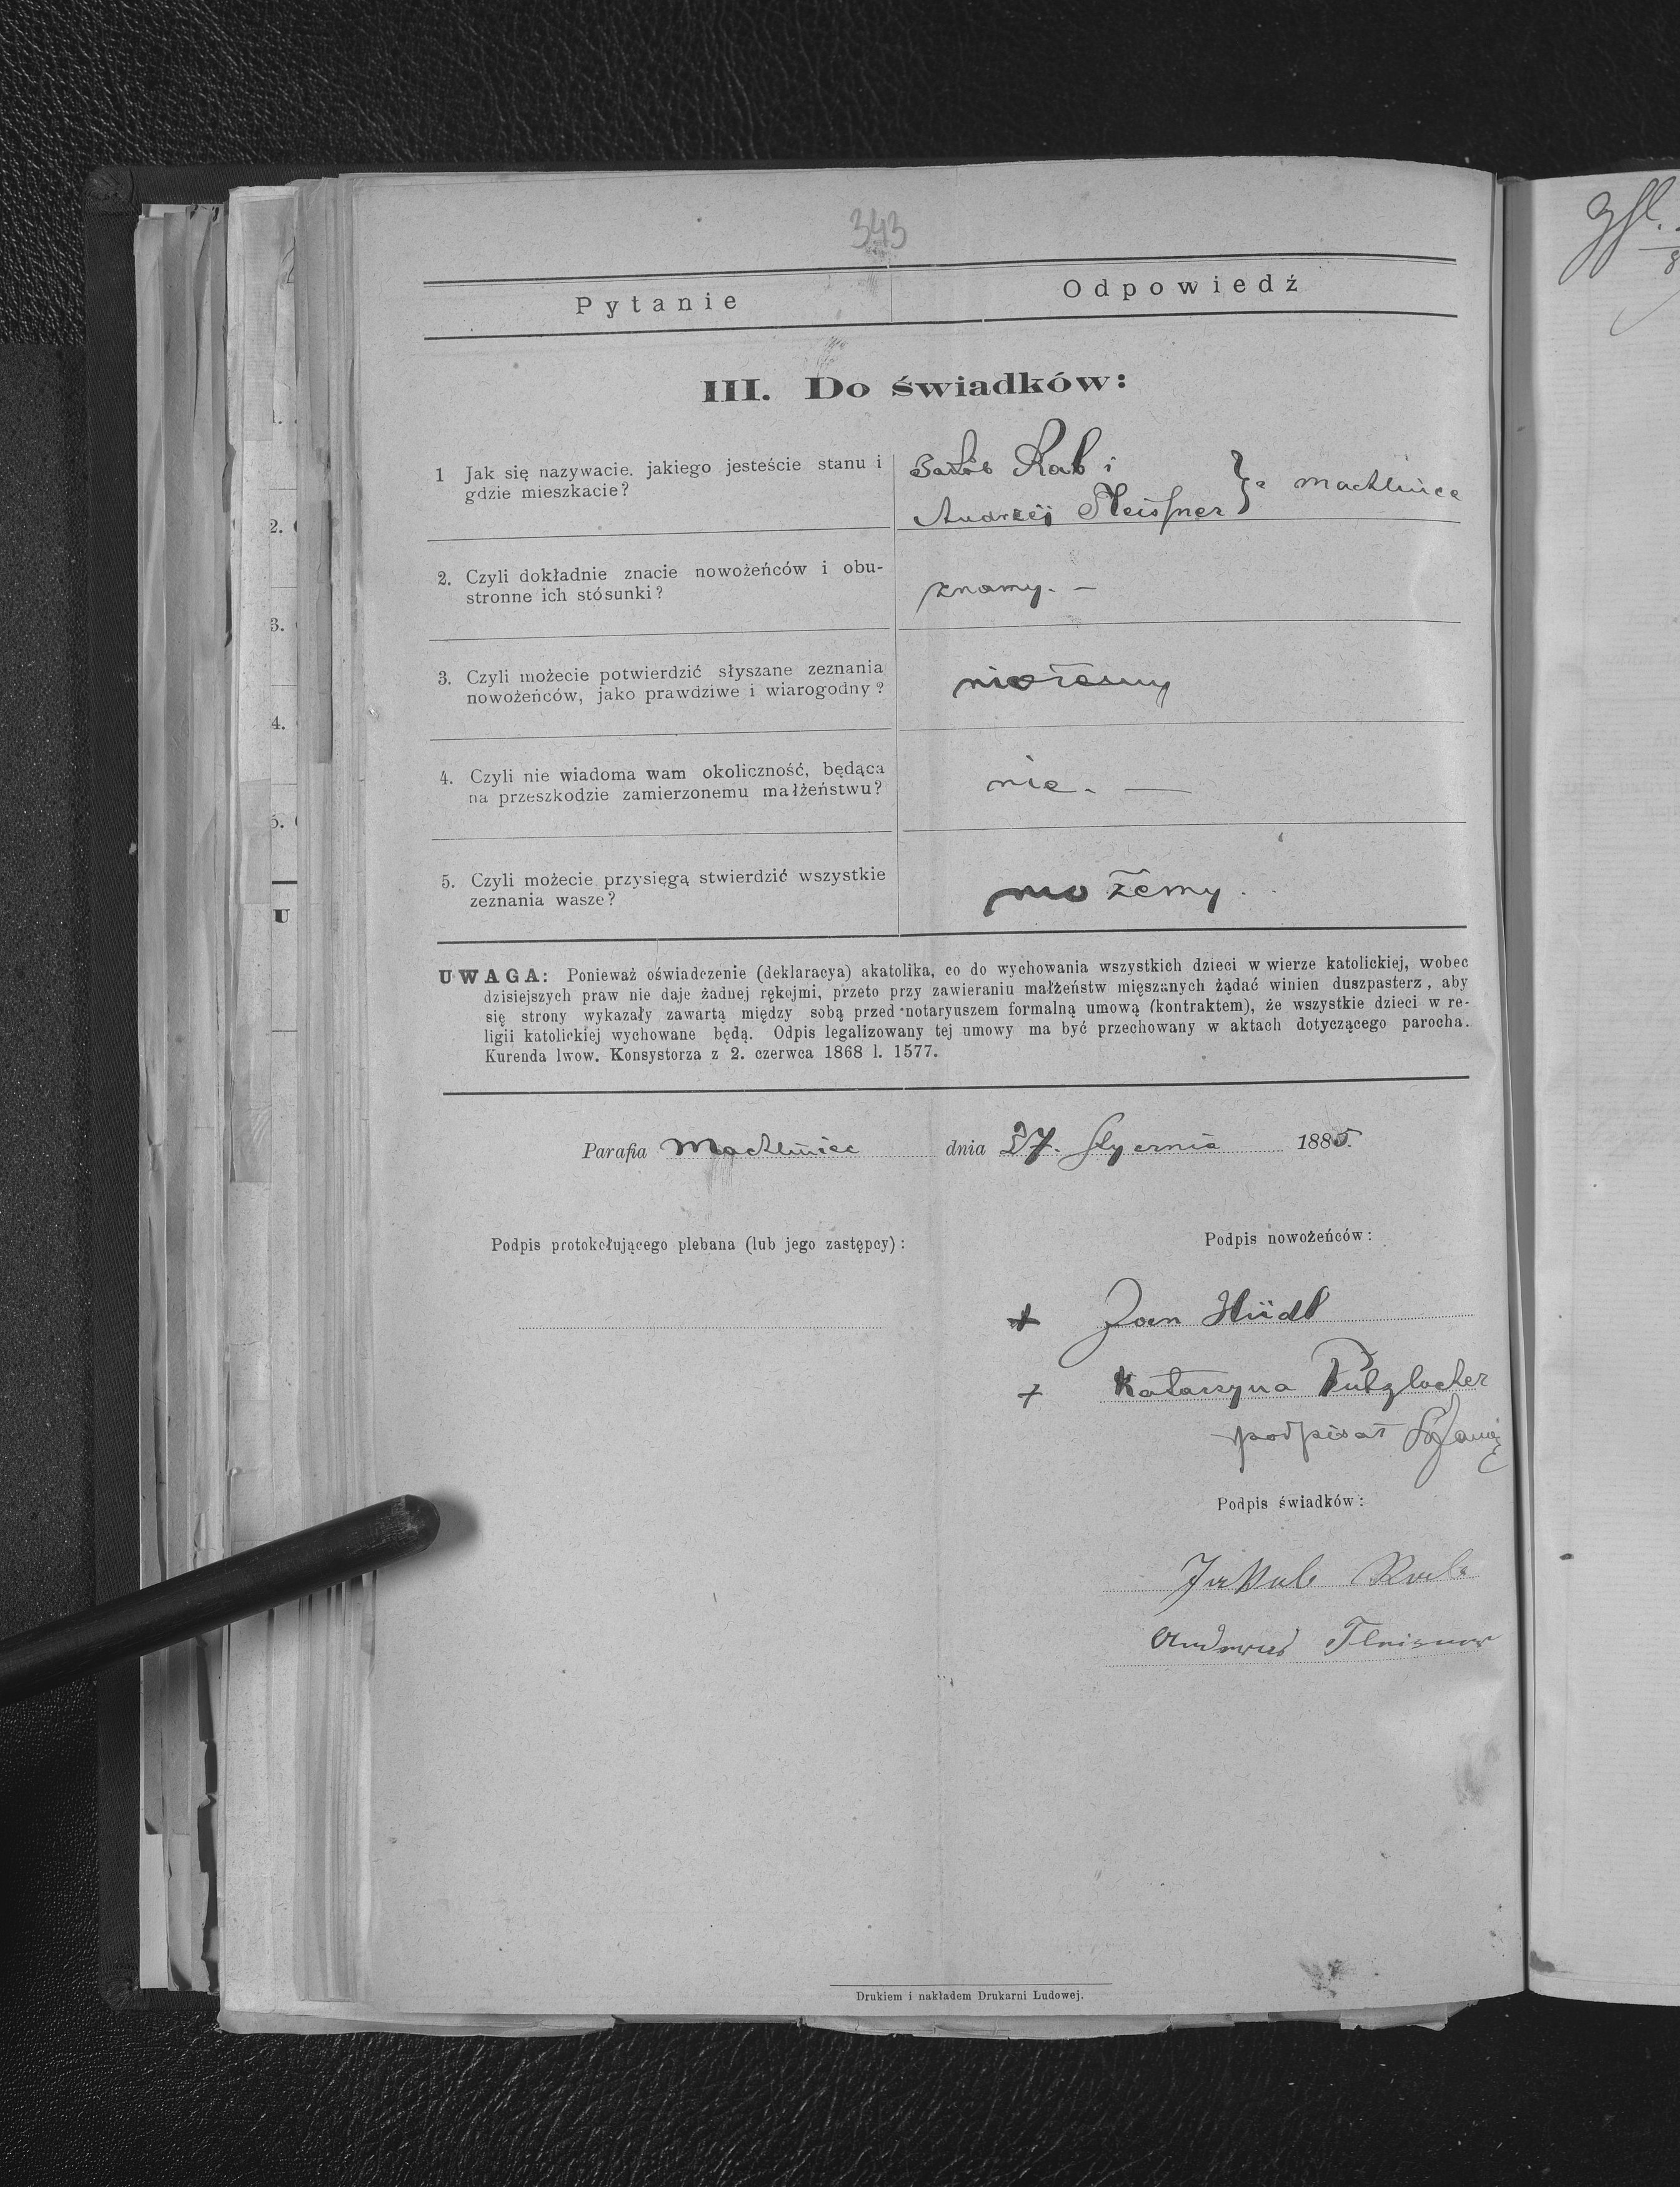 343
Pytanie
Odpowiedź
III. Do świadków:
1 Jak się nazywacie. jakiego jesteście stanu i
gdzie mieszkacie?
Jakób Rab i
Andrzej Fleissner } z Machlińca
2. Czyli dokładnie znacie nowożeńców i obu-
stronne ich stósunki?
znamy. —
3. Czyli możecie potwierdzić słyszane zeznania
nowożeńców, jako prawdziwe i wiarogodny?
możemy
4. Czyli nie wiadoma wam okoliczność, będąca
na przeszkodzie zamierzonemu małżeństwu?
nie. —
5. Czyli możecie przysięgą stwierdzić wszystkie
zeznania wasze?
możemy.
UWAGA: Ponieważ oświadczenie (deklaracya) akatolika, co do wychowania wszystkich dzieci w wierze katolickiej, wobec
dzisiejszych praw nie daje żadnej rękojmi, przeto przy zawieraniu małżeństw mięszanych żądać winien duszpasterz, aby
się strony wykazały zawartą między sobą przed notaryuszem formalną umową (kontraktem), że wszystkie dzieci w re-
ligii katolickiej wychowane będą. Odpis legalizowany tej umowy ma być przechowany w aktach dotyczącego parocha.
Kurenda lwow. Konsystorza z 2. czerwca 1868 l. 1577.
Parafia Machliniec dnia 27. Stycznia 1885.
Podpis protokołującego plebana (lub jego zastępcy):
Podpis nowożeńców:
+ Jan Hüdl
+ Katarzyna Putzlocher
podpisał
Podpis świadków:
Jakub Rab
Drukiem i nakładem Drukarni Ludowej.
2.
3.
4.
5.
U